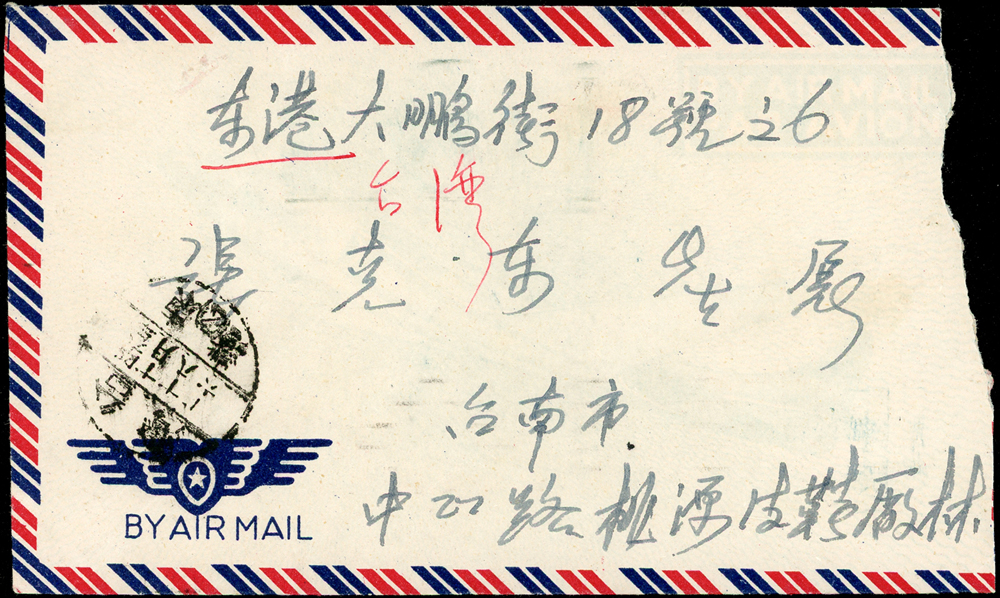 东港大鹏街18號之6
台湾
張克东先生展
台南市
中正路桃源皮鞋廠林
BY AIR MAIL